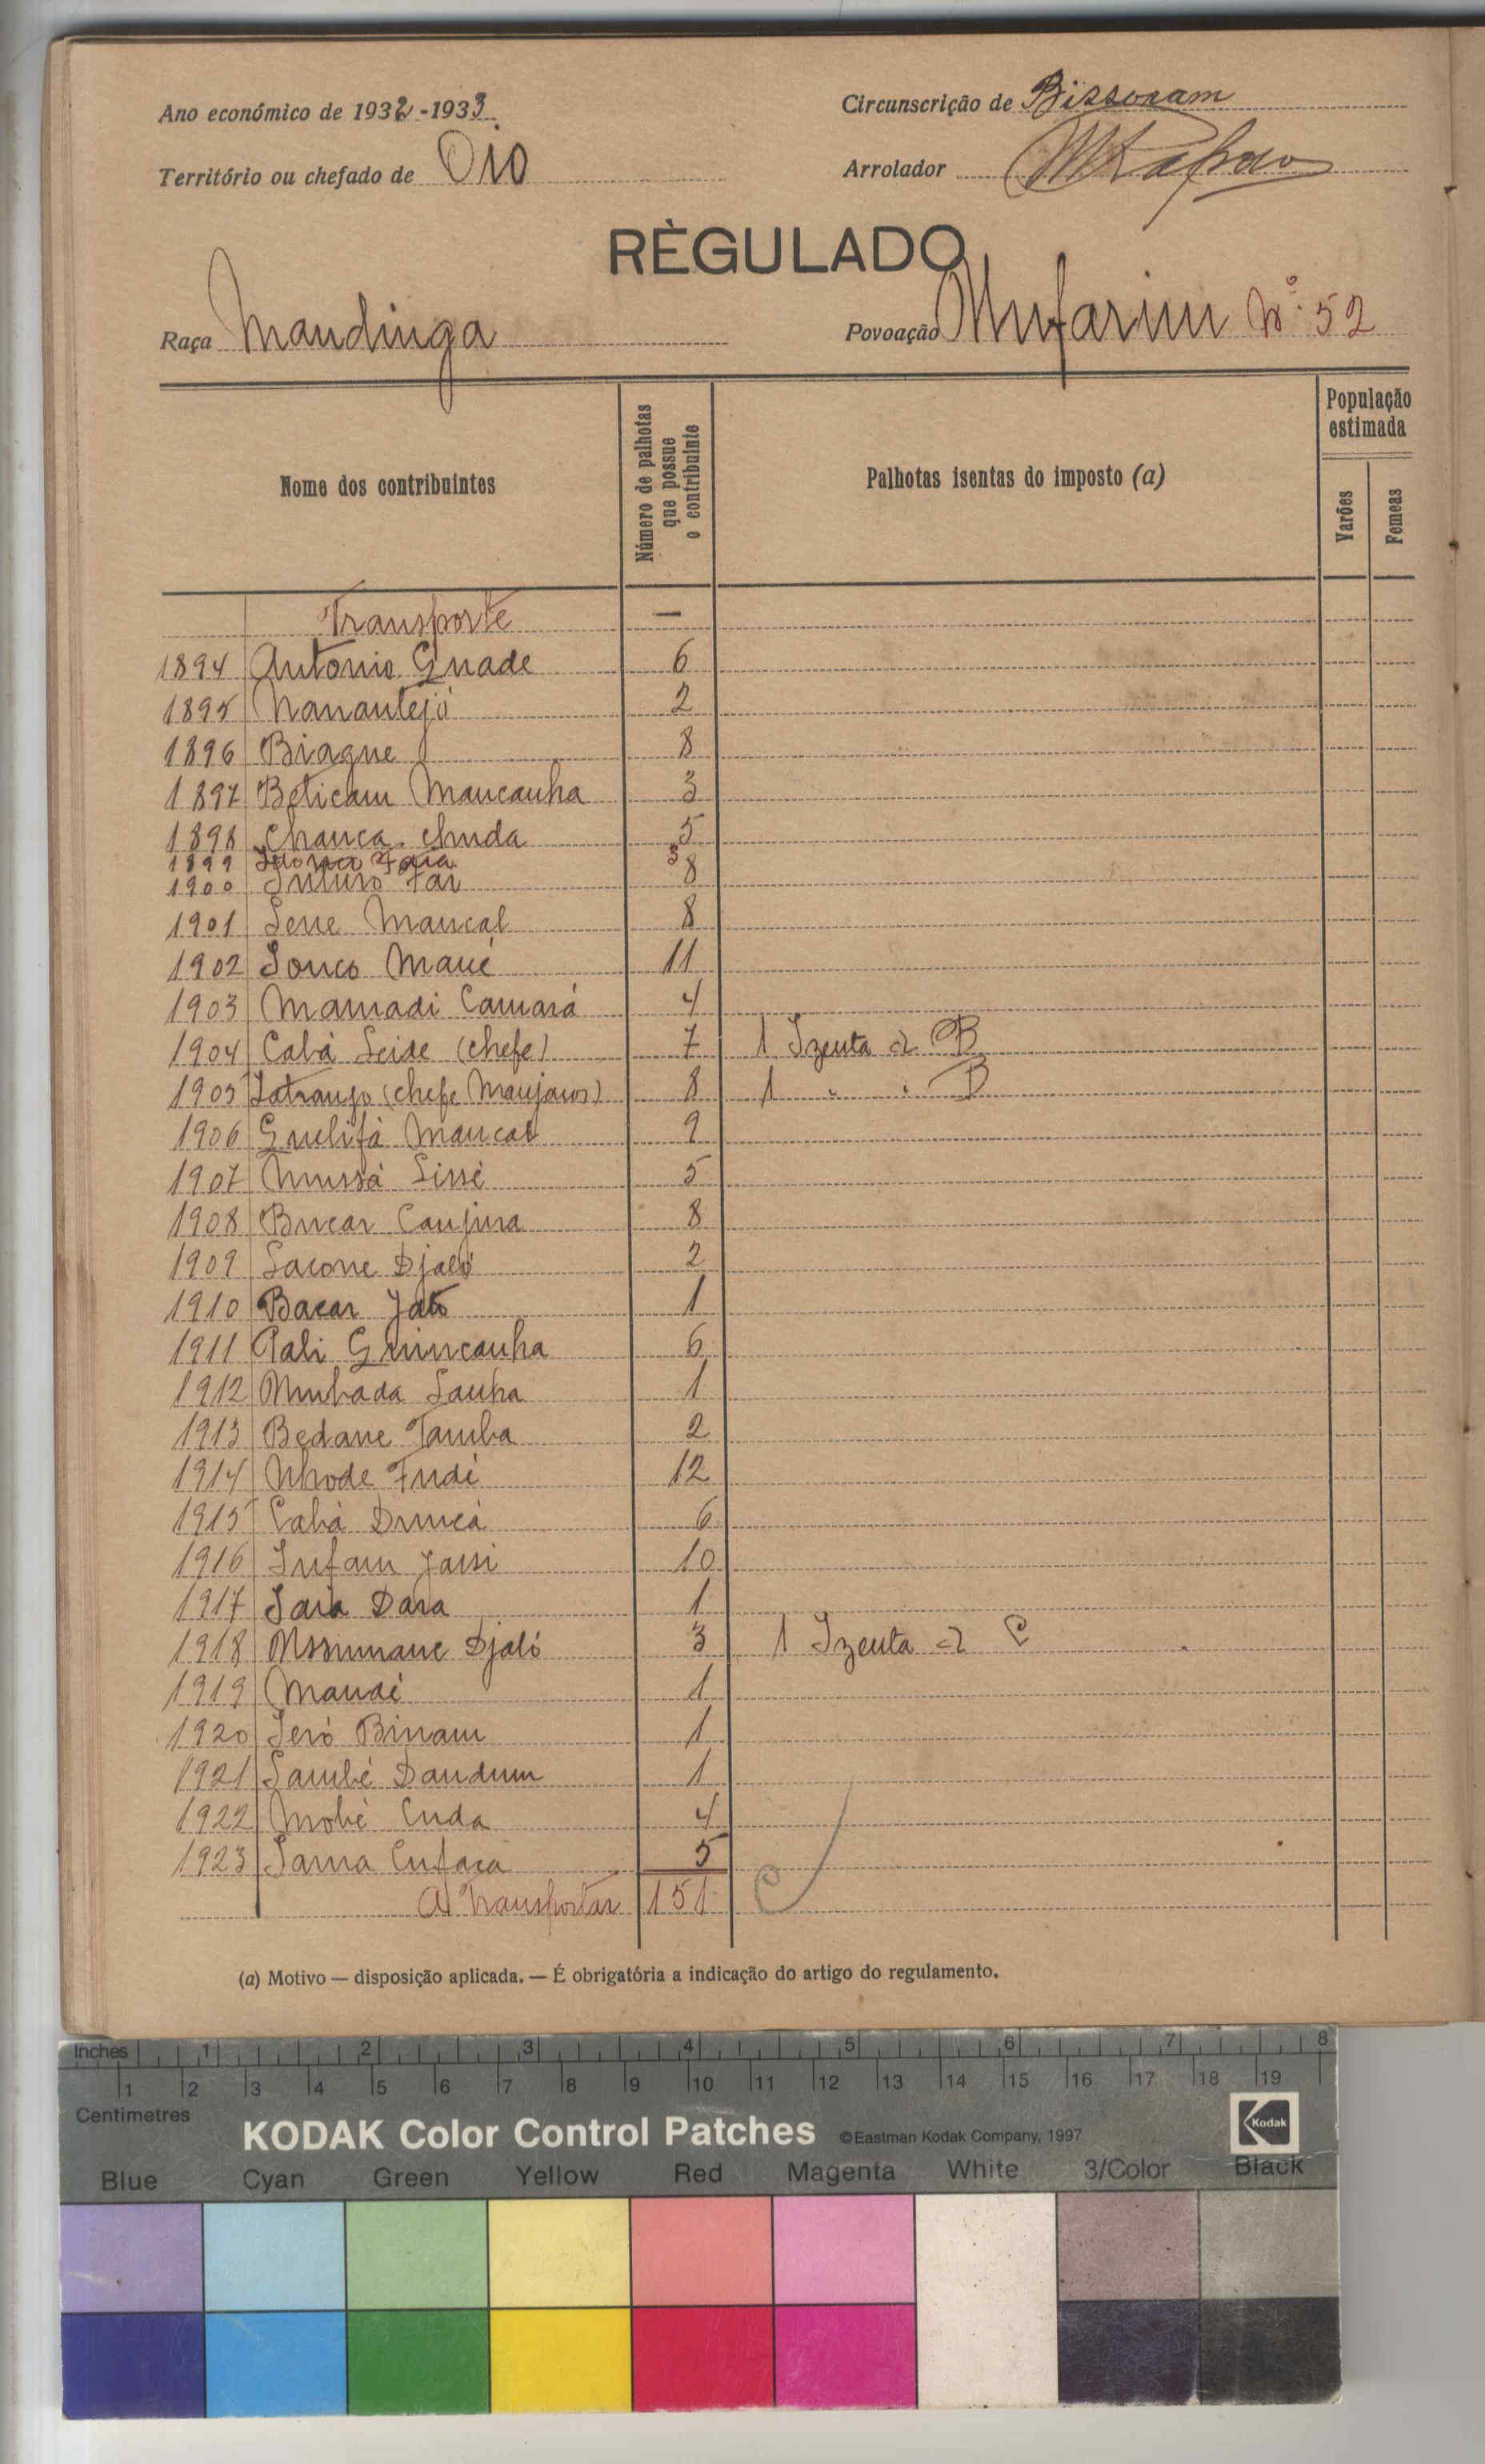 Ano económico de 1932-1933
Circunscrição de Bissoram
Território ou chefado de Oio
Arrolador
RÈGULADO
Raça Mandinga
Povoação Mufarim Nº 52
Nome dos contribuintes
Número de palhotas que possue o contribuinte
Palhotas isentas do imposto (a)
População estimada
Varões
Femeas
Transporte —
1894 Antonio Guade 6
1895 Nanantejó 2
1896 Biague 8
1897 Beticam Mancanha 3
1898 Chanca Chuda 5
1899 3
1900 8
1901 Sene Mancal 8
1902 Sonco Mané 11
1903 Mamadi Camará 4
1904 Cabá Seide (chefe) 7 1 Izenta a) B
1905 (chefe Manjacos) 8 1 " " B
1906 Guelifá Mancal 9
1907 Mussá Sissé 5
1908 Bucar Canjura 8
1909 Sacone Djaló 2
1910 Bacar Jató 1
1911 Pali Gunincanha 6
1912 Mubada Sanha 1
1913 Bedane Tamba 2
1914 Nhode Fudé 12
1915 Cabá Drucá 6
1916 Infam Jassi 10
1917 Saia Dara 1
1918 Mssumane Djaló 3 1 Izenta a) C
1919 Mandé 1
1920 Seró Binam 1
1921 Sambé Dandum 1
1922 Mobé Cuda 4
1923 Sama Cufaca 5
A Transportar 151
(a) Motivo — disposição aplicada. — É obrigatória a indicação do artigo do regulamento.
Inches 1 2 3 4 5 6 7 8
1 2 3 4 5 6 7 8 9 10 11 12 13 14 15 16 17 18 19
Centimetres
KODAK Color Control Patches ©Eastman Kodak Company, 1997 Kodak
Blue Cyan Green Yellow Red Magenta White 3/Color Black